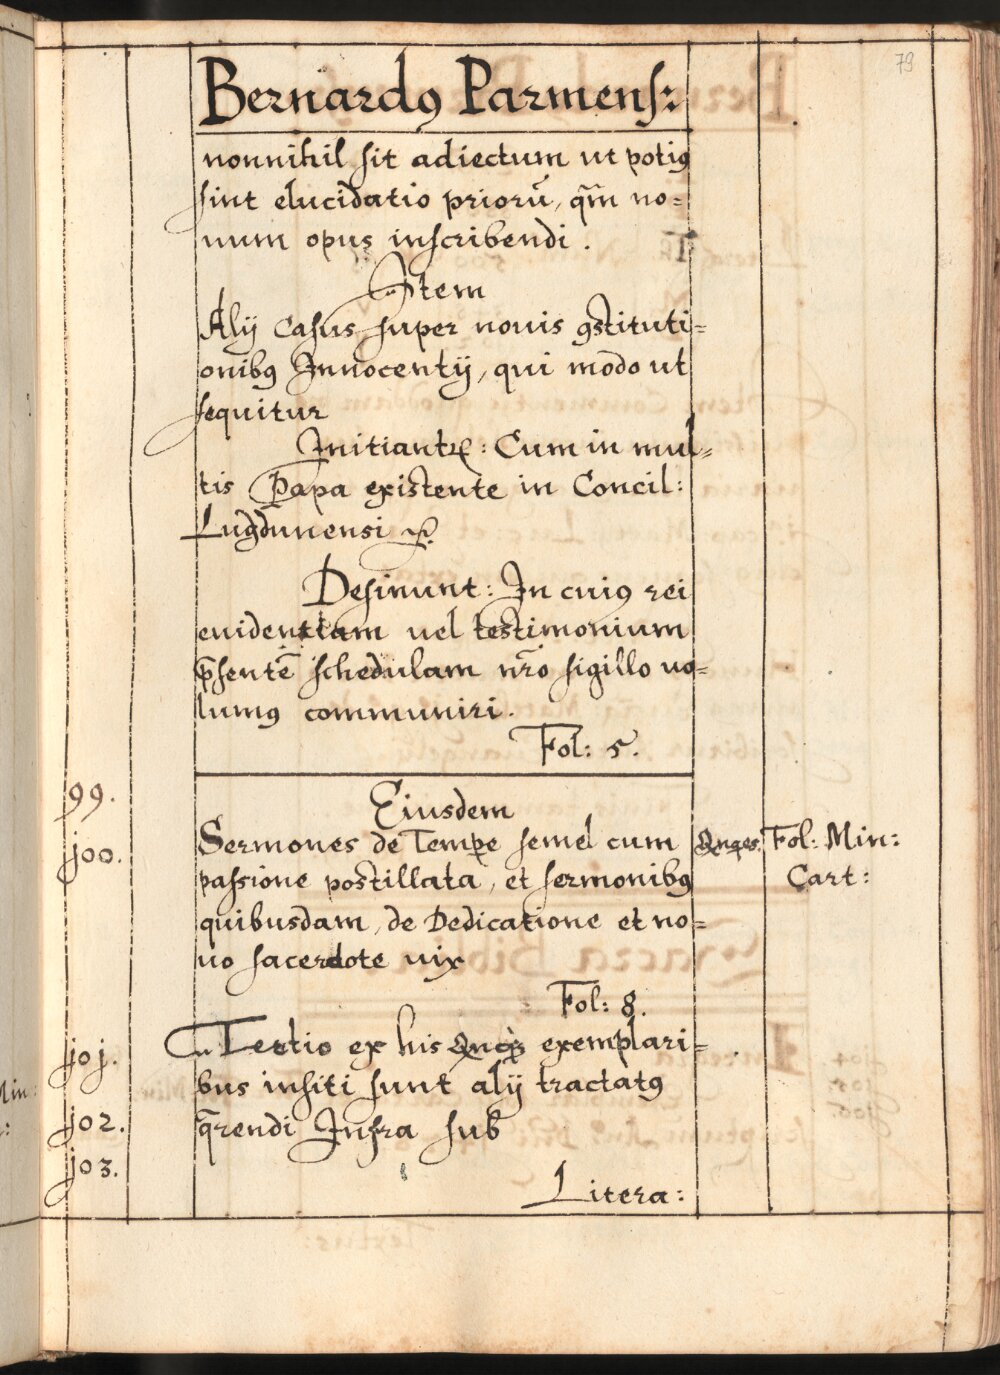 79
Bernardꝯ Parmens:
nonnihil sit adiectum ut potiꝯ
sint elucidatio priorū, qm̄ no=
uum opus inscribendi.
Item
Alij Casus super nouis ꝯstituti=
onibꝯ Innocentij, qui modo ut
sequitur
Initiantr: Cum in mul=
tis Papa existente in Concil:
Lugdunensi ꝛc.
Desinunt: In cuiꝯ rei
euidentiam uel testimonium
p̄sentē schedulam nr̄o sigillo uo=
lumꝯ communiri.
Fol: 5.
99.
Eiusdem
j00.
Sermones de Tempe semel cum
Fol: Min:
passione postillata, et sermonibꝯ
Cart:
quibusdam, de Dedicatione et no=
uo sacerdote uix
Fol: 8.
j0j.
Tertio ex his exemplari=
bus insiti sunt alij tractatꝯ
j02.
q̄rendi Infra sub
j03.
Litera: